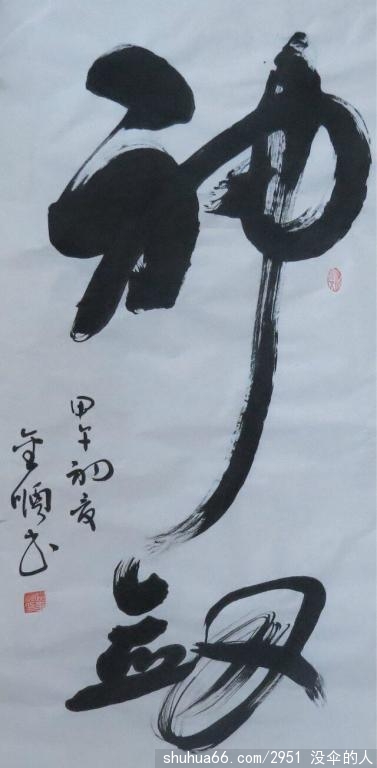 神劔
甲午初夏
金順书
shuhua66.com/2951 没伞的人